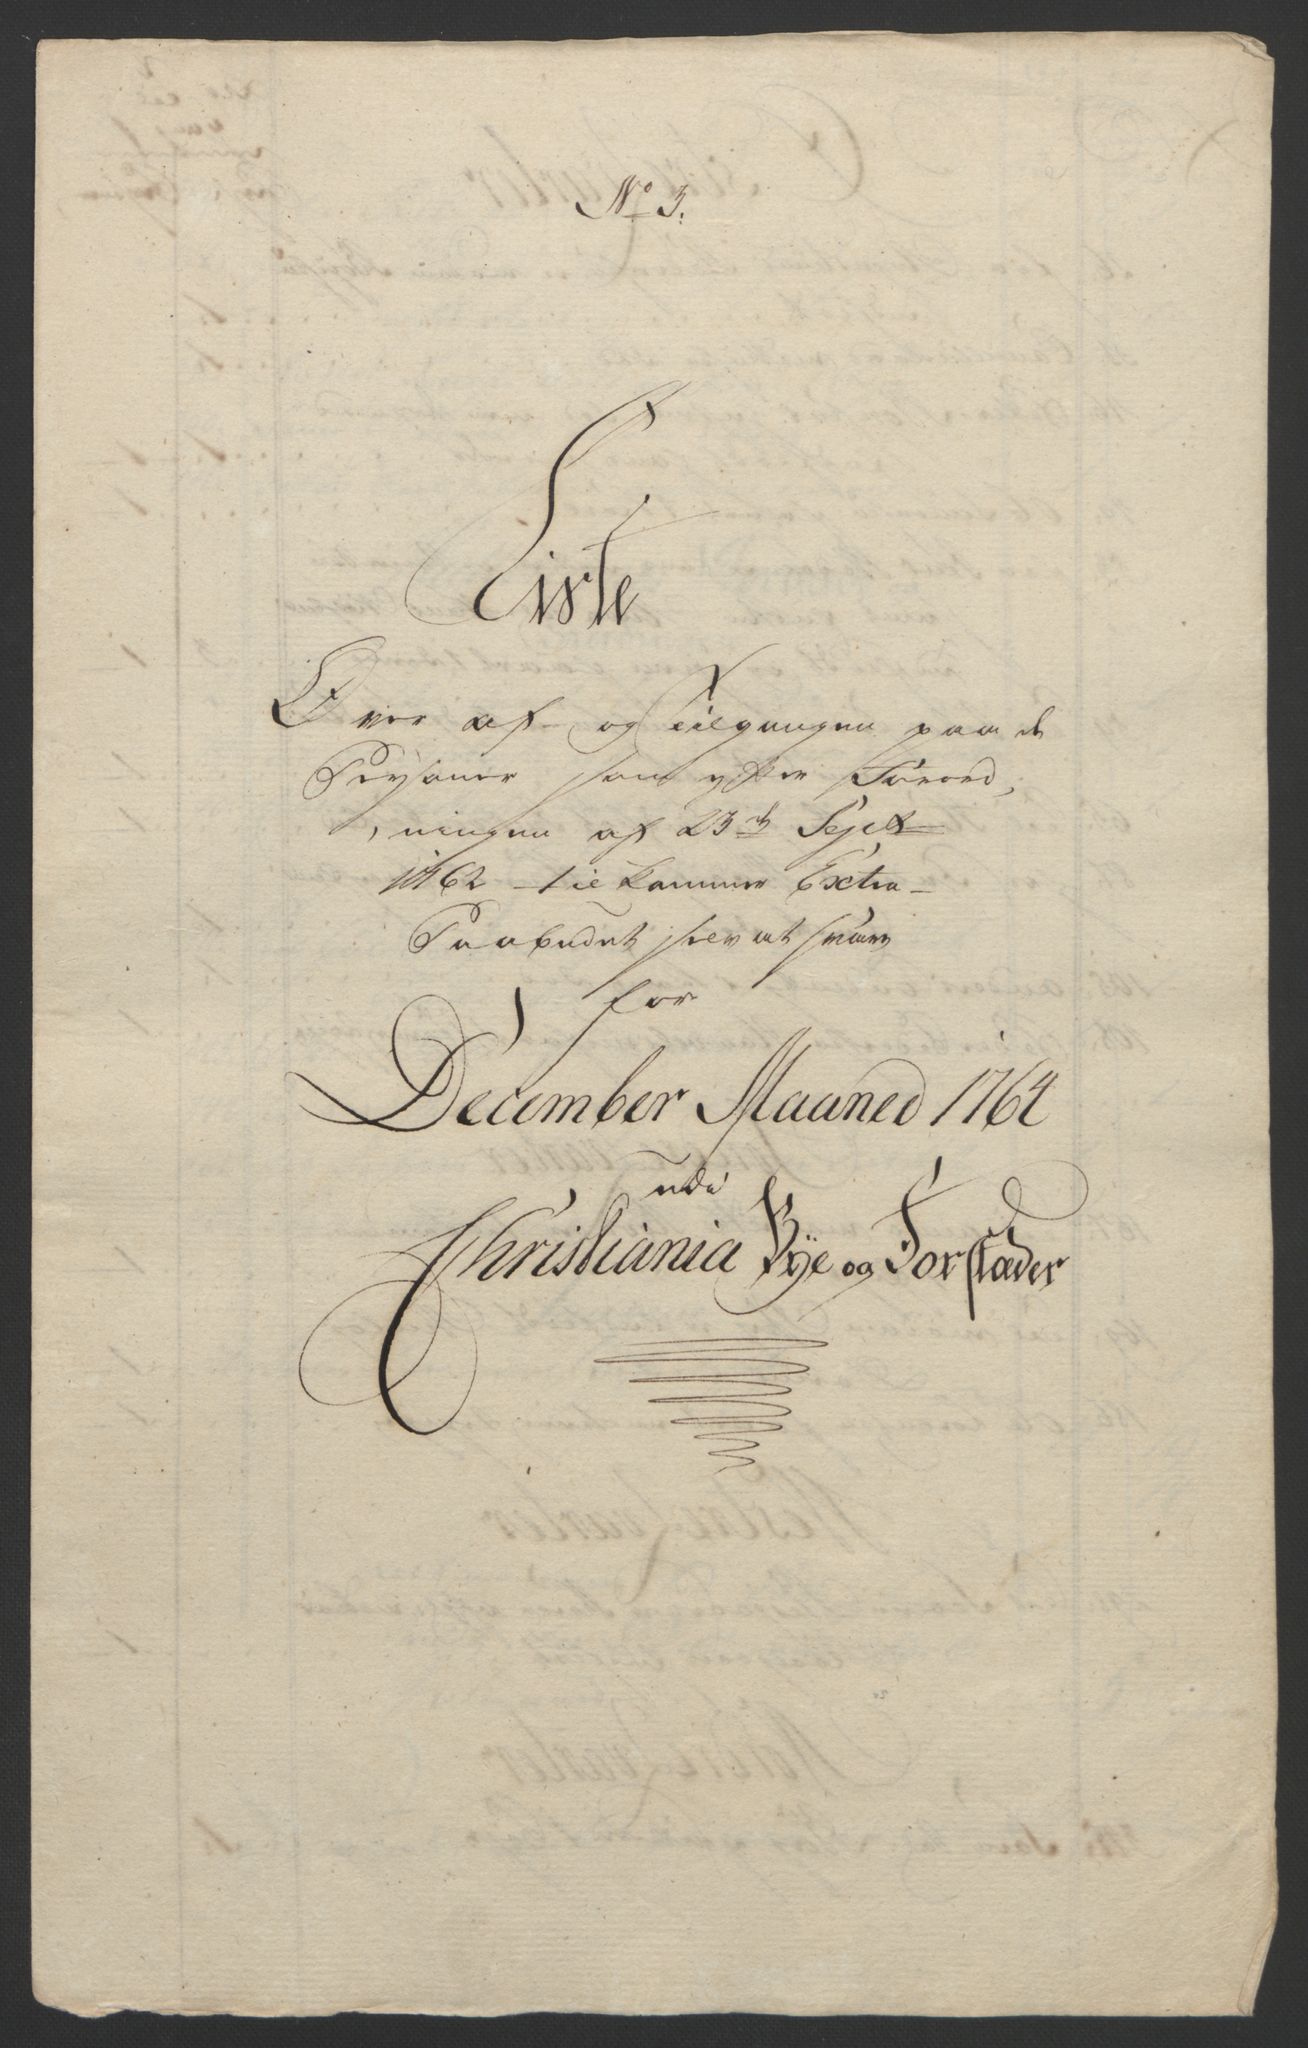 No 3.
Liste
Over af- og Tilgangen paa de
Persaner som efter Forord,
,ningen af 23de Sept
1762 tilkommer Extra-
Paabudet selv at svare
for
December Maaned 1764
udi
Christiania Bye og Forstæder